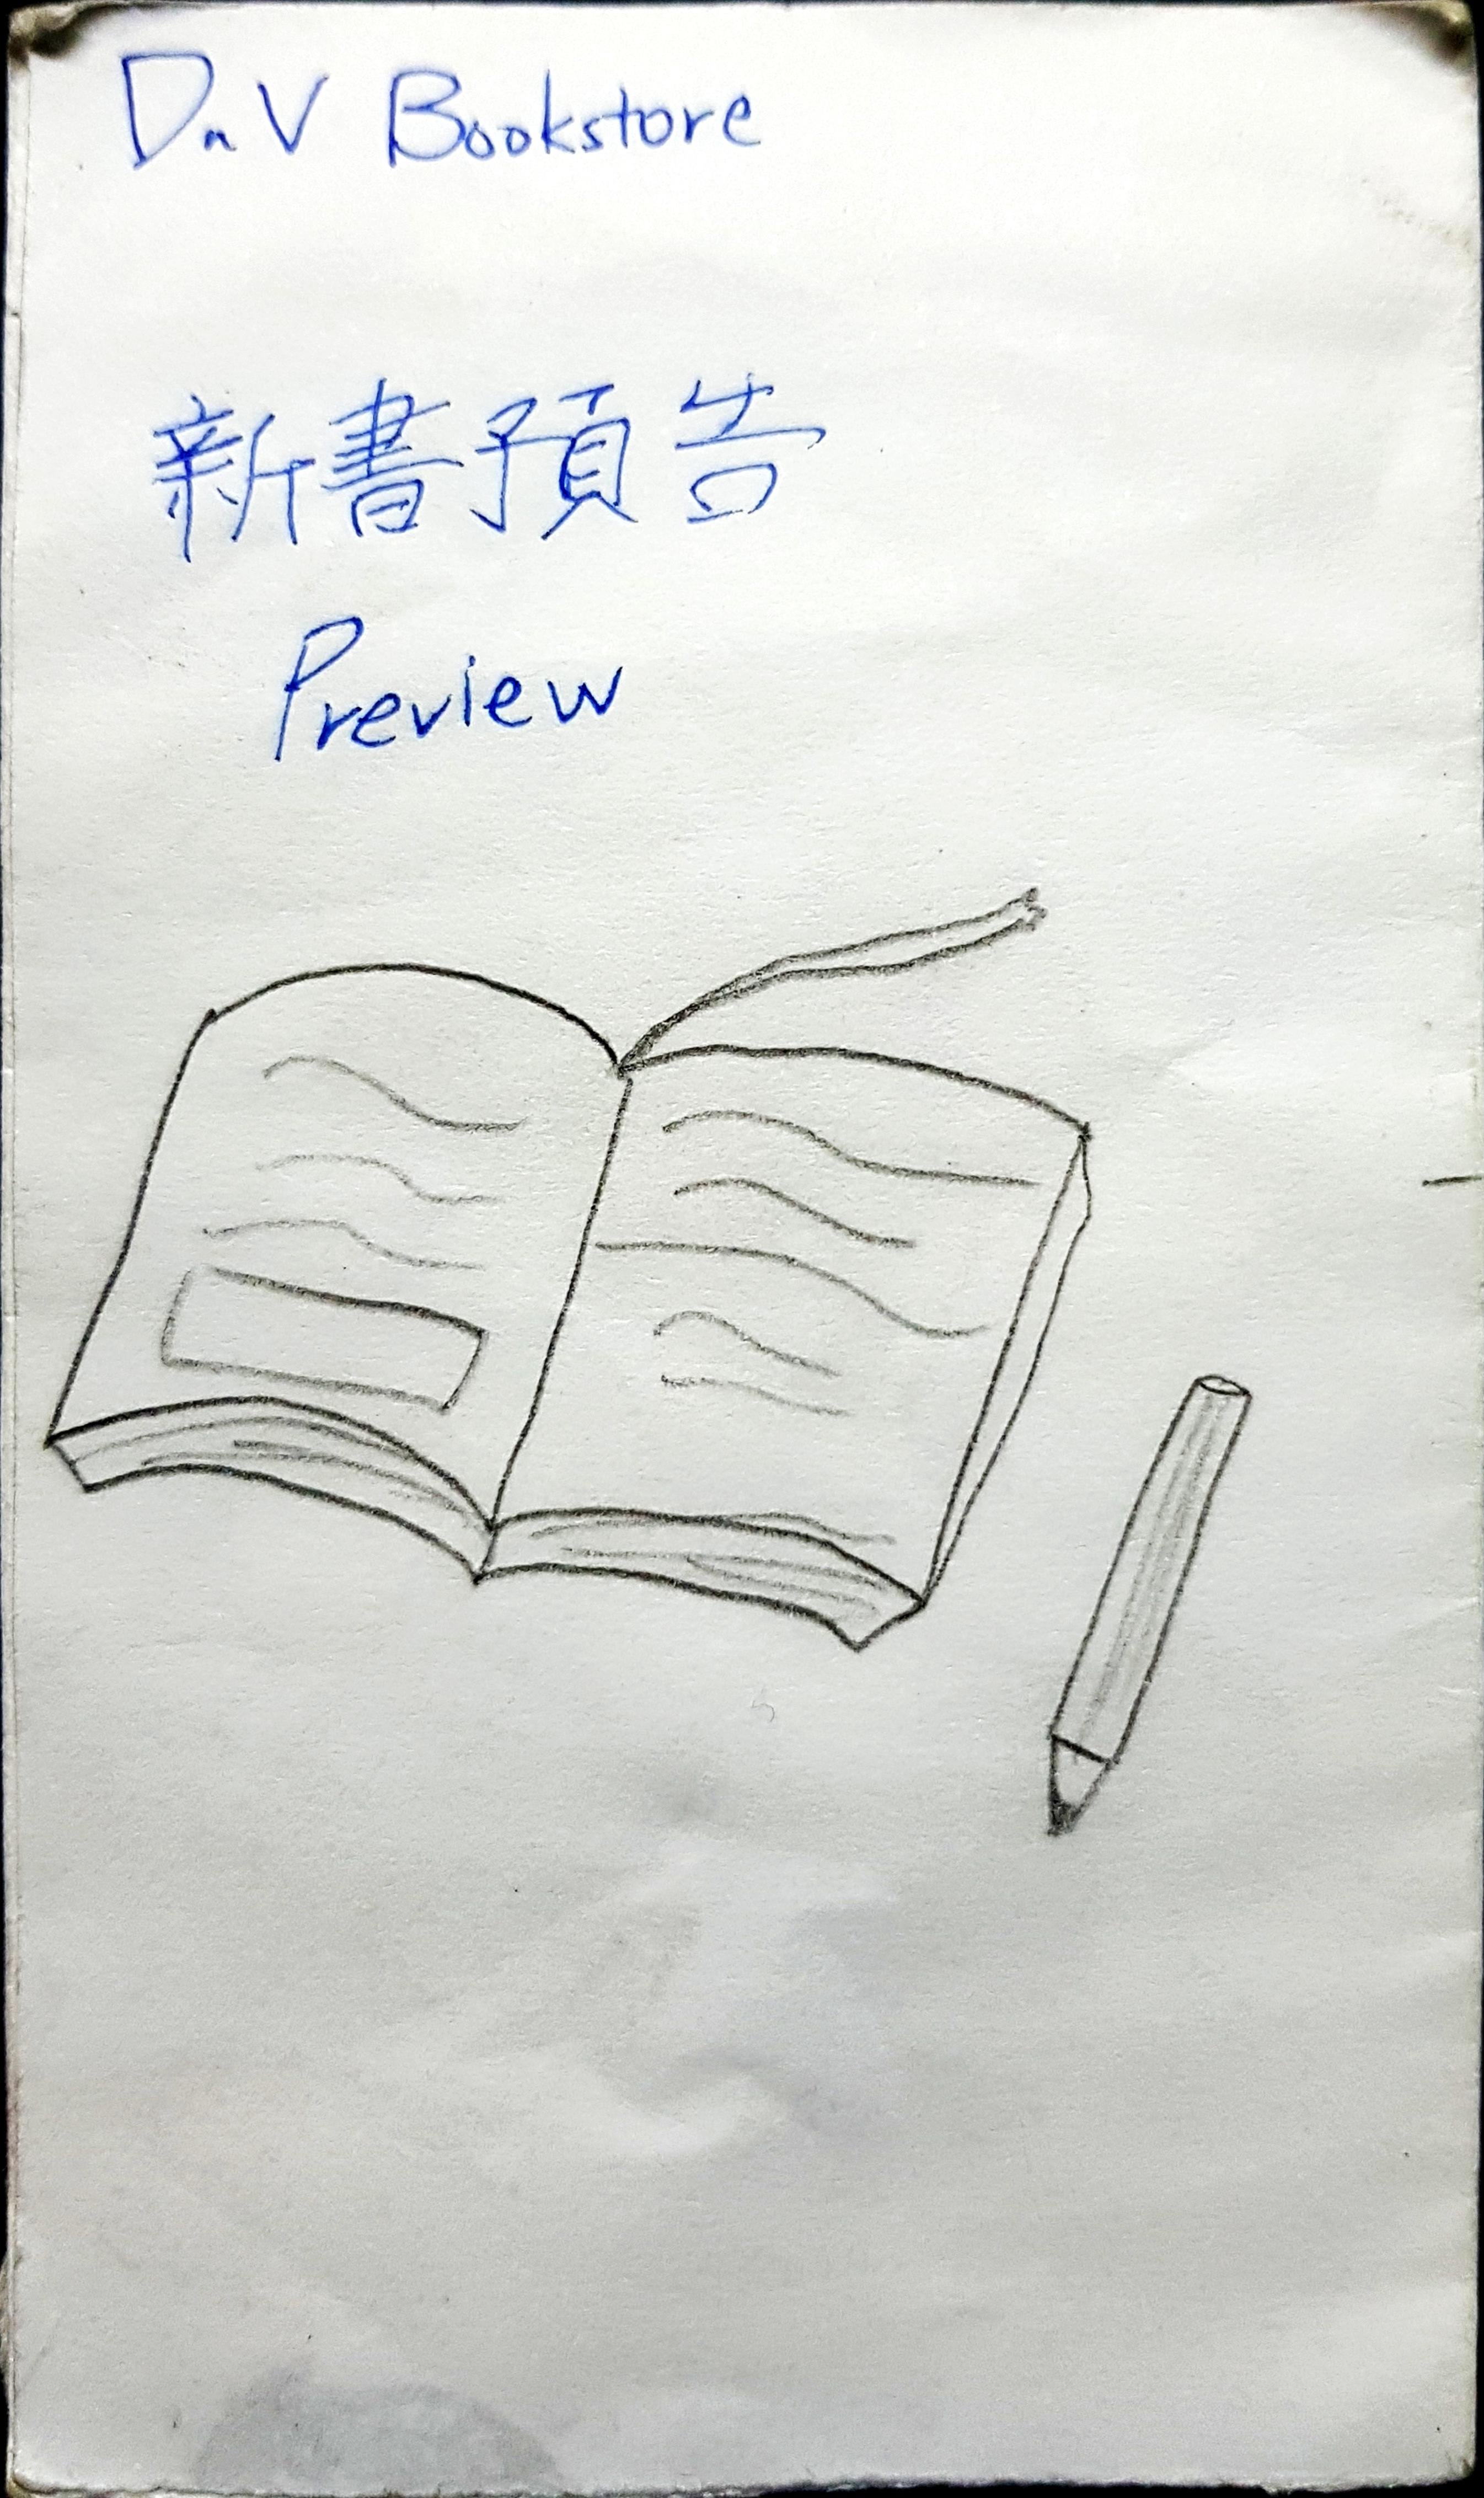 DaV Bookstore
新書預告
Preview